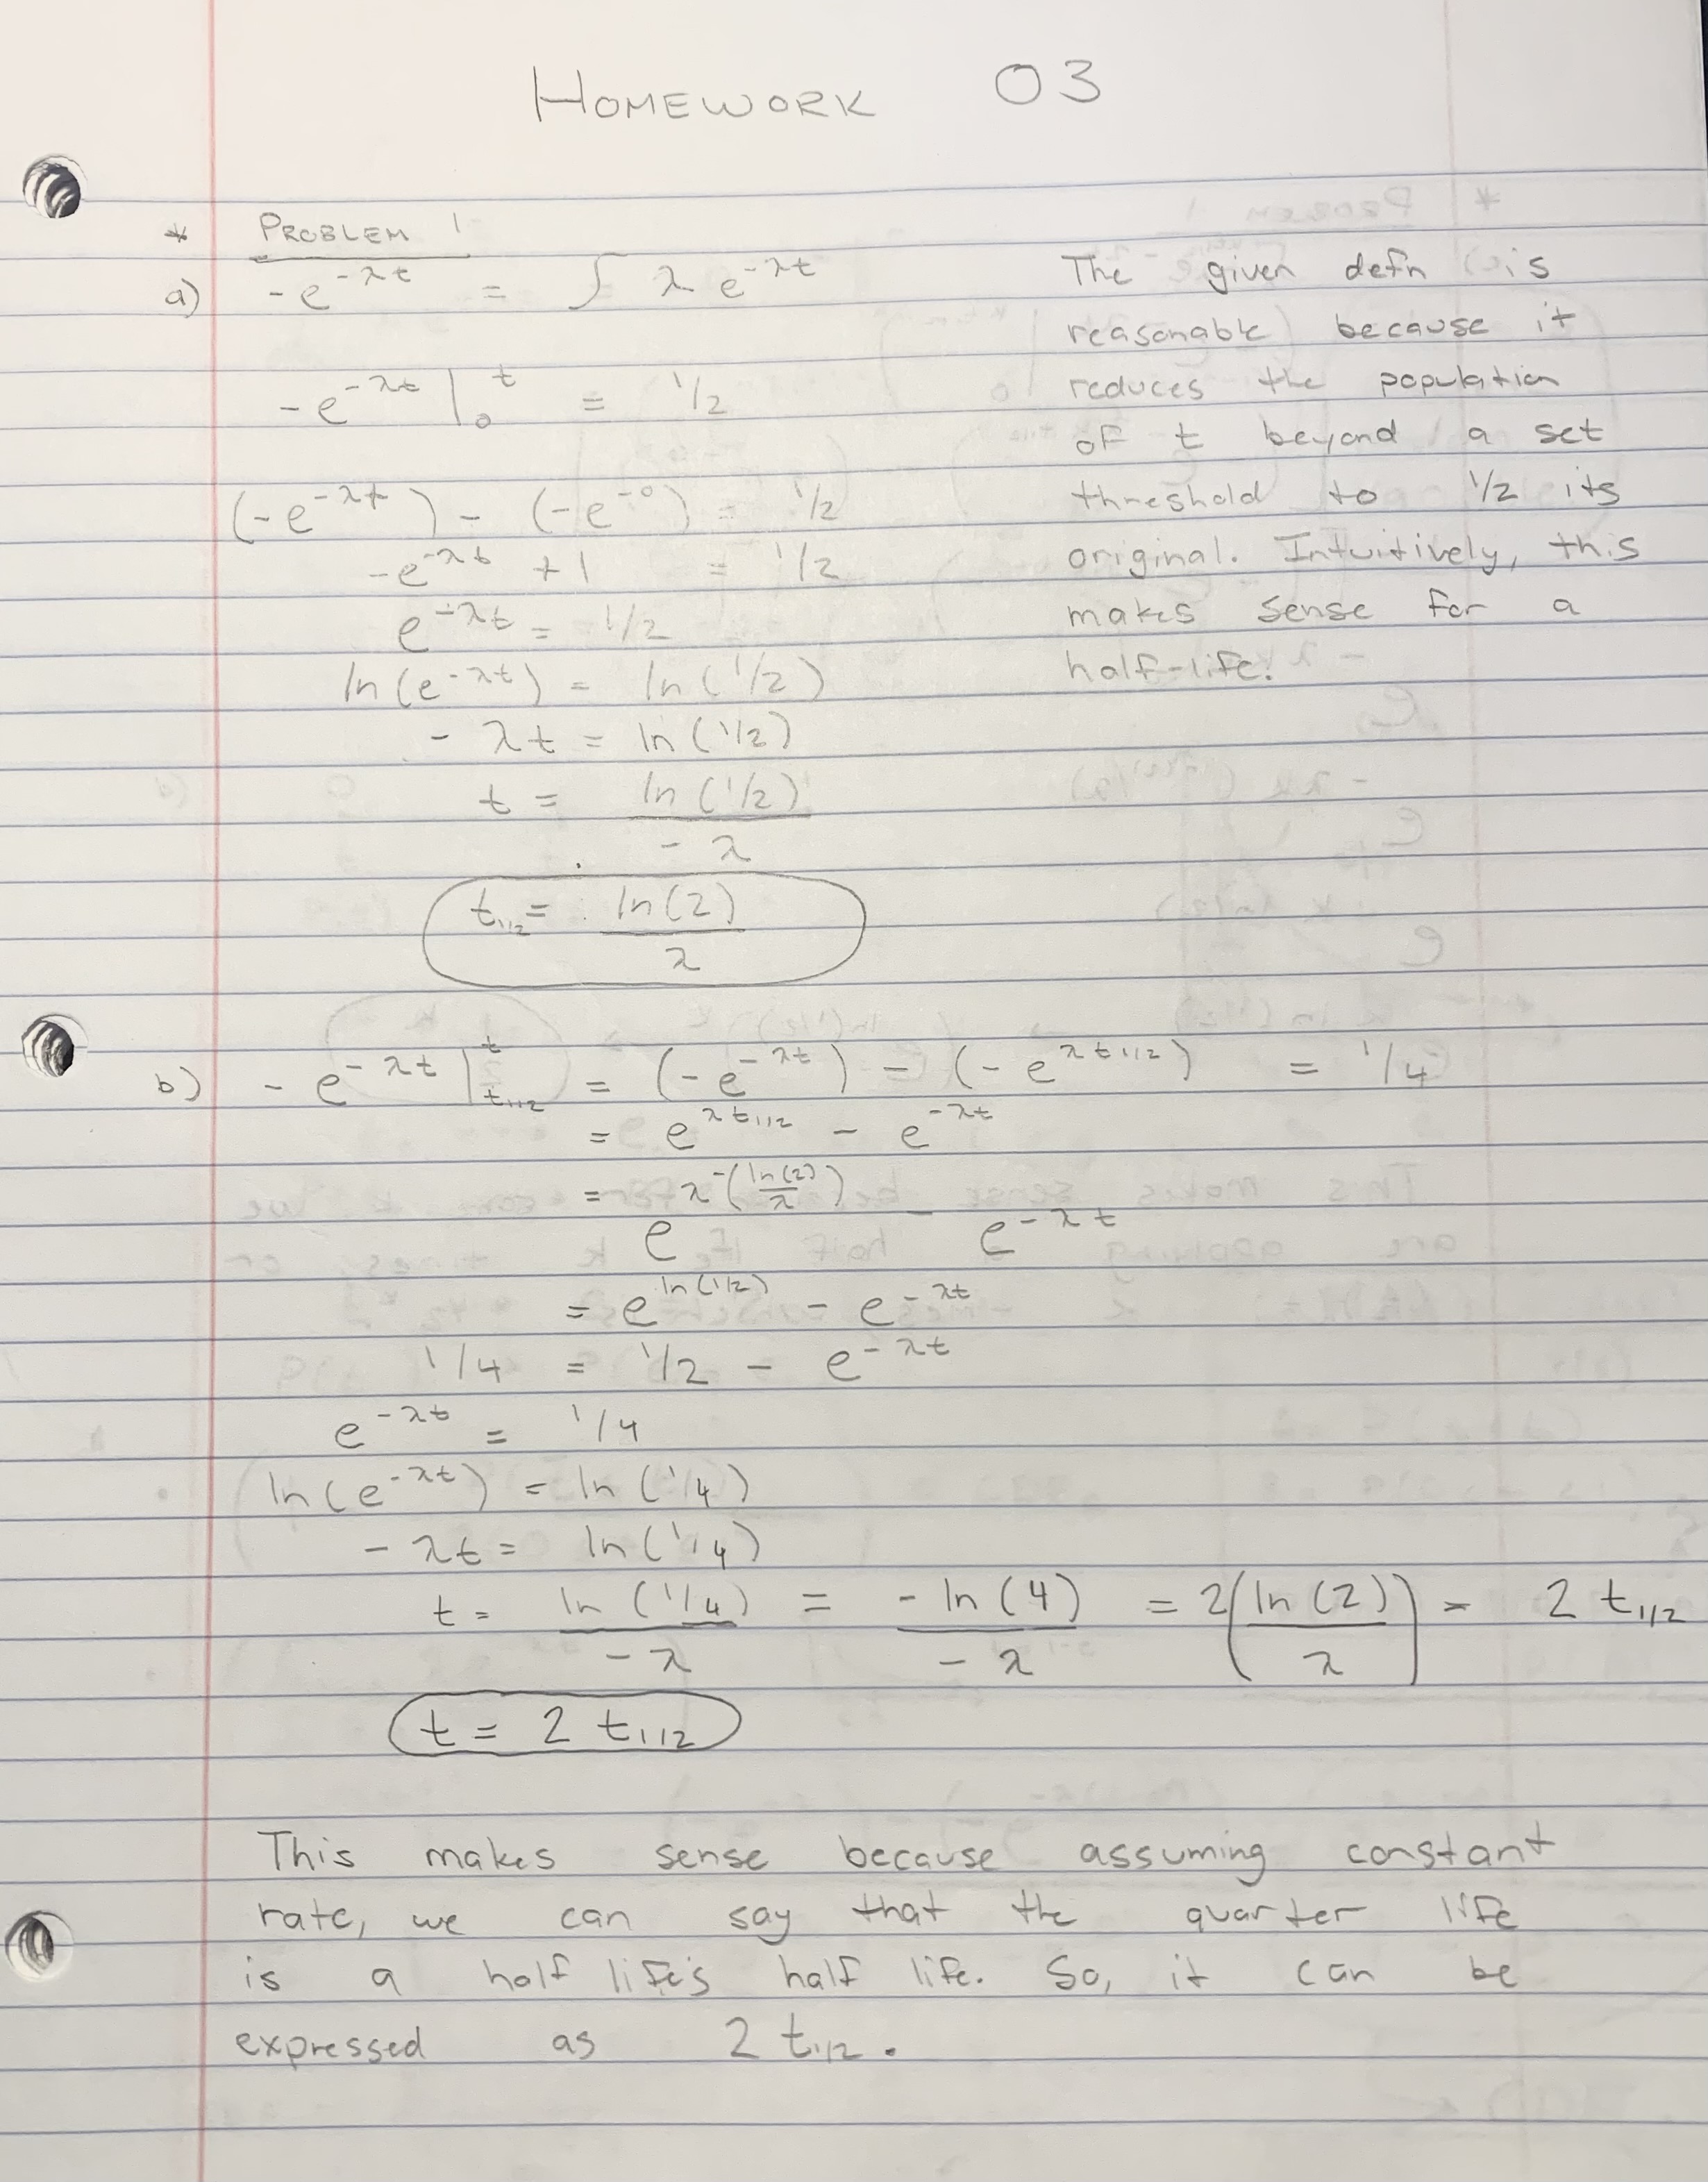 HOMEWORK 03
* PROBLEM 1
a) -e^{-λt} = ∫ λ e^{-λt}
-e^{-λt} |_0^t = 1/2
(-e^{-λt}) - (-e^{-0}) = 1/2
-e^{-λt} + 1 = 1/2
e^{-λt} = 1/2
ln(e^{-λt}) = ln(1/2)
- λt = ln(1/2)
t = ln(1/2) / -λ
t_{1/2} = ln(2) / λ
The given defn is
reasonable because it
reduces the population
of t beyond a set
threshold to 1/2 its
original. Intuitively, this
makes sense for a
half-life.
b) -e^{-λt} |_{t_{1/2}}^t = (-e^{-λt}) - (-e^{λt_{1/2}}) = 1/4
= e^{λt_{1/2}} - e^{-λt}
= e^{λ-(ln(2)/λ)} - e^{-λt}
= e^{ln(1/2)} - e^{-λt}
1/4 = 1/2 - e^{-λt}
e^{-λt} = 1/4
ln(e^{-λt}) = ln(1/4)
- λt = ln(1/4)
t = ln(1/4) / -λ = -ln(4) / -λ = 2(ln(2) / λ) = 2 t_{1/2}
t = 2 t_{1/2}
This makes sense because assuming constant
rate, we can say that the quarter life
is a half life's half life. So, it can be
expressed as 2 t_{1/2}.